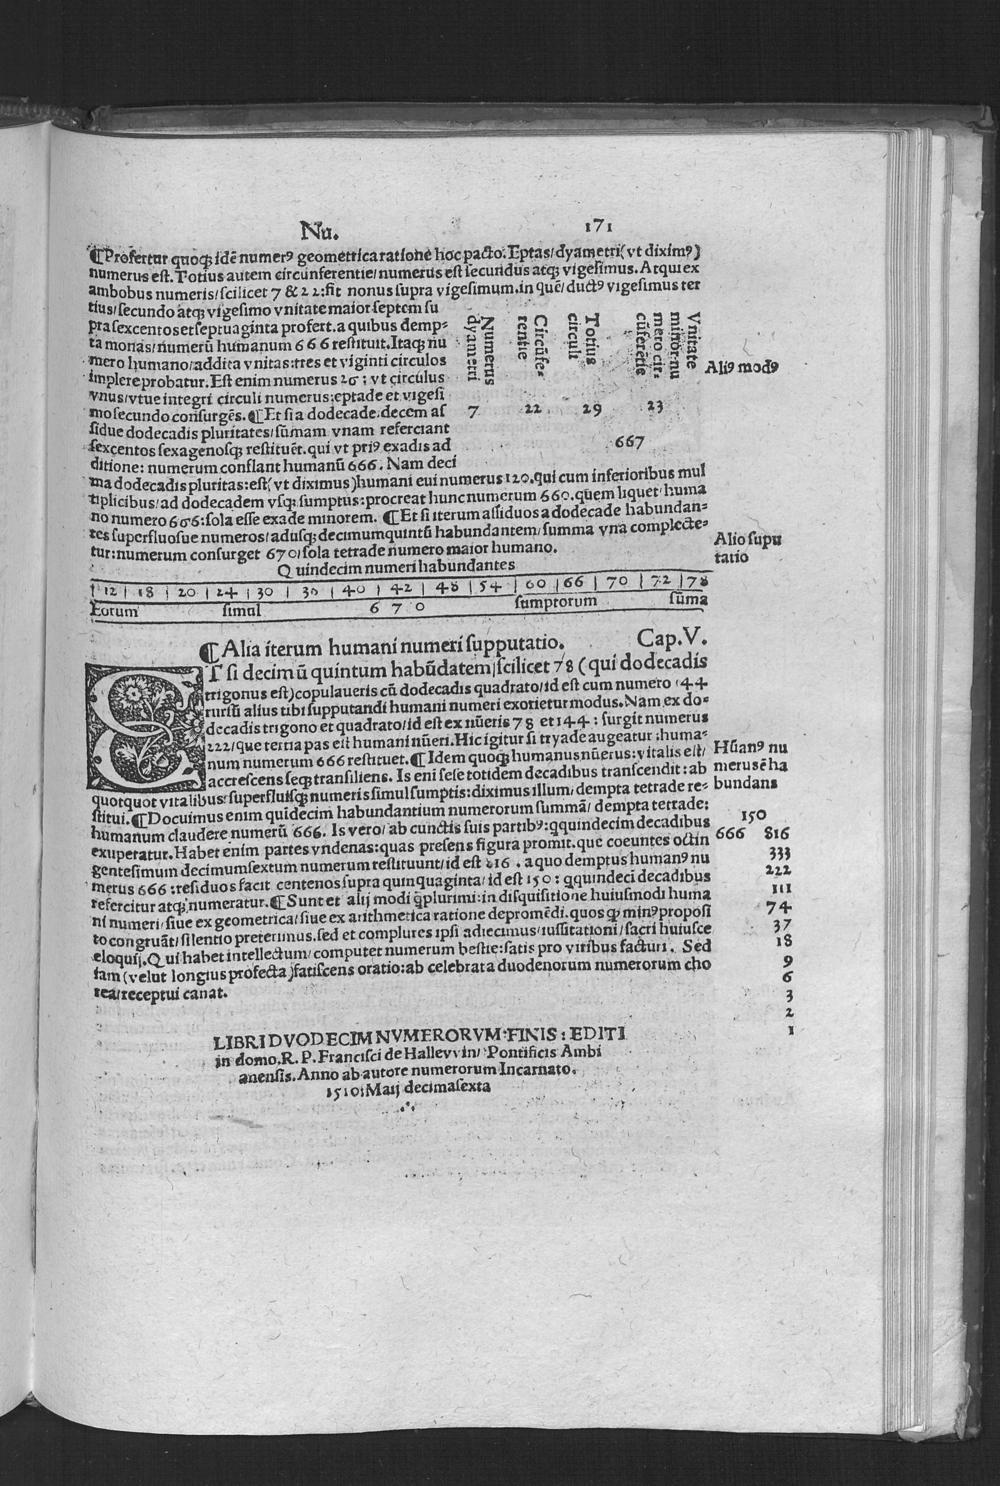 Nu. 171
¶Profertur quoqꝫ idē numerꝰ geometrica ratione hoc pacto. Eptas/dyametri(vt diximꝰ)
numerus est. Totius autem circunferentie/numerus est secundus atqꝫ vigesimus. Atqui ex
ambobus numeris/scilicet 7 & 22:fit nonus supra vigesimum.in quē/ductꝰ vigesimus ter
tius/secundo atqꝫ vigesimo vnitate maior:septem su
pra sexcentos et septuaginta profert.a quibus demp-
ta monas/numerū humanum 666 restituit. Itaqꝫ nu
mero humano/addita vnitas:tres et viginti circulos
implere probatur. Est enim numerus 29:vt circulus
vnus/vtue integri circuli numerus:eptade et vigesi
mo secundo consurgēs. ¶Et si a dodecade/decem as
sidue dodecadis pluritates/sūmam vnam referciant
sexcentos sexagenosqꝫ restituēt.qui vt priꝰ exadis ad
ditione: numerum conflant humanū 666. Nam deci
ma dodecadis pluritas:est(vt diximus)humani eui numerus 120.qui cum inferioribus mul
tiplicibus/ad dodecadem vsqꝫ sumptus:procreat hunc numerum 660.quem liquet/huma
no numero 666:sola esse exade minorem. ¶Et si iterum assiduos a dodecade habundan-
tes superfluosue numeros/adusqꝫ decimumquintū habundantem/summa vna complecte-
tur:numerum consurget 670/sola tetrade numero maior humano.
Numerus dyametri
Circūfe-rentie
Totius circuli
Vnitate minor nu mero cir-cūferētie
7 22 29 23
667
Aliꝰ modꝰ
Alio supu
tatio
Quindecim numeri habundantes
12 | 18 | 20 | 24 | 30 | 36 | 40 | 42 | 48 | 54 | 60 | 66 | 70 | 72 | 78
Eorum simul 670 sumptorum sūma
¶Alia iterum humani numeri supputatio. Cap.V.
ET si decimū quintum habūdatem/scilicet 78 (qui dodecadis
trigonus est)copulaueris cū dodecadis quadrato/id est cum numero 144
rursū alius tibi supputandi humani numeri exorietur modus. Nam ex do-
decadis trigono et quadrato/id est ex nūeris 78 et 144: surgit numerus
222/que tertia pas est humani nūeri. Hic igitur si tryade augeatur:huma-
num numerum 666 restituet. ¶Idem quoqꝫ humanus nūerus:vitalis est/
accrescens seqꝫ transiliens. Is eni sese totidem decadibus transcendit:ab
quotquot vitalibus/superfluisqꝫ numeris simul sumptis:diximus illum/dempta tetrade re-
stitui. ¶Docuimus enim quidecim habundantium numerorum summā/dempta tetrade:
humanum claudere numerū 666. Is vero/ab cunctis suis partibꝰ:qquindecim decadibus
exuperatur. Habet enim partes vndenas:quas presens figura promit.que coeuntes octin
gentesimum decimumsextum numerum restituunt/id est 816.a quo demptus humanꝰ nu
merus 666:residuos facit centenos supra quinquaginta/id est 150: qquindeci decadibus
refercitur atqꝫ numeratur. ¶Sunt et alij modi qplurimi:in disquisitione huiusmodi huma
ni numeri/siue ex geometrica/siue ex arithmetica ratione depromēdi.quos qꝫ minꝰ proposi
to congruāt/silentio preterimus.sed et complures ipsi adiecimus/iussitationi/sacri huiusce
eloquij. Qui habet intellectum/computet numerum bestie:satis pro viribus facturi. Sed
iam(velut longius profecta)fatiscens oratio:ab celebrata duodenorum numerorum cho
rea/receptui canat.
Hūanꝰ nu
merus ē ha
bundans
150
666 816
333
222
111
74
37
18
9
6
3
2
1
LIBRI DVODECIM NVMERORVM FINIS: EDITI
in domo.R.P.Francisci de Hallevvin/Pontificis Ambi
anensis. Anno ab autore numerorum Incarnato.
1510:Maij decimasexta